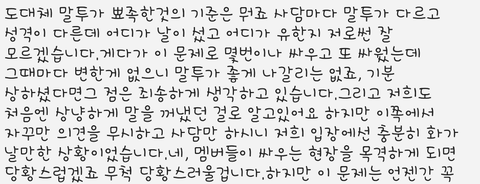 도대체 말투가 뾰족한것의 기준은 뭐죠 사담마다 말투가 다르고
성격이 다른데 어디가 날이 섰고 어디가 유한지 저로썬 잘
모르겠습니다.게다가 이 문제로 몇번이나 싸우고 또 싸웠는데
그때마다 변함게 없으니 말투가 좋게 나갈리는 없죠, 기분
상하셨다면그 점은 죄송하게 생각하고 있습니다.그리고 저희도
처음엔 상냥하게 말을 꺼냈던 걸로 알고있어요 하지만 이쪽에서
자꾸만 의견을 무시하고 사담만 하시니 저희 입장에선 충분히 화가
날만한 상황이었습니다.네, 멤버들이 싸우는 현장을 목격하게 되면
당황스럽겠죠 무척 당황스러울겁니다.하지만 이 문제는 언젠간 꼭